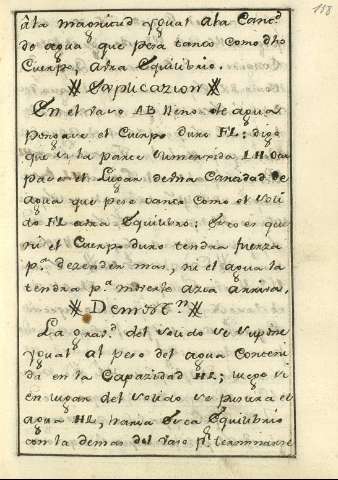 118
âla magnitud ygual ala Canc.d
de agua que pesa tanto como dho
Cuerpo, atra Equilibrio.
Esplicazion
En el vaso AB lleno de agua
pongase el Cuerpo duro FL: digo
que si la parte sumerxida LH ocu
pase el Lugar de una Cantidad de
agua que pese tanto como el soli
do FL atra Equilibrio: Esto es que
ni el Cuerpo duro tendra fuerza
p.a dezender mas, ni el agua la
tendra p.a moverle azia arriva.
Demost.n
La grav.d del solido se supone
ygual al peso del agua conteni
da en la Capazidad HL; luego si
en lugar del solido se pusiera el
agua HL, haria esta Equilibrio
con la demas del vaso p.r terminarse